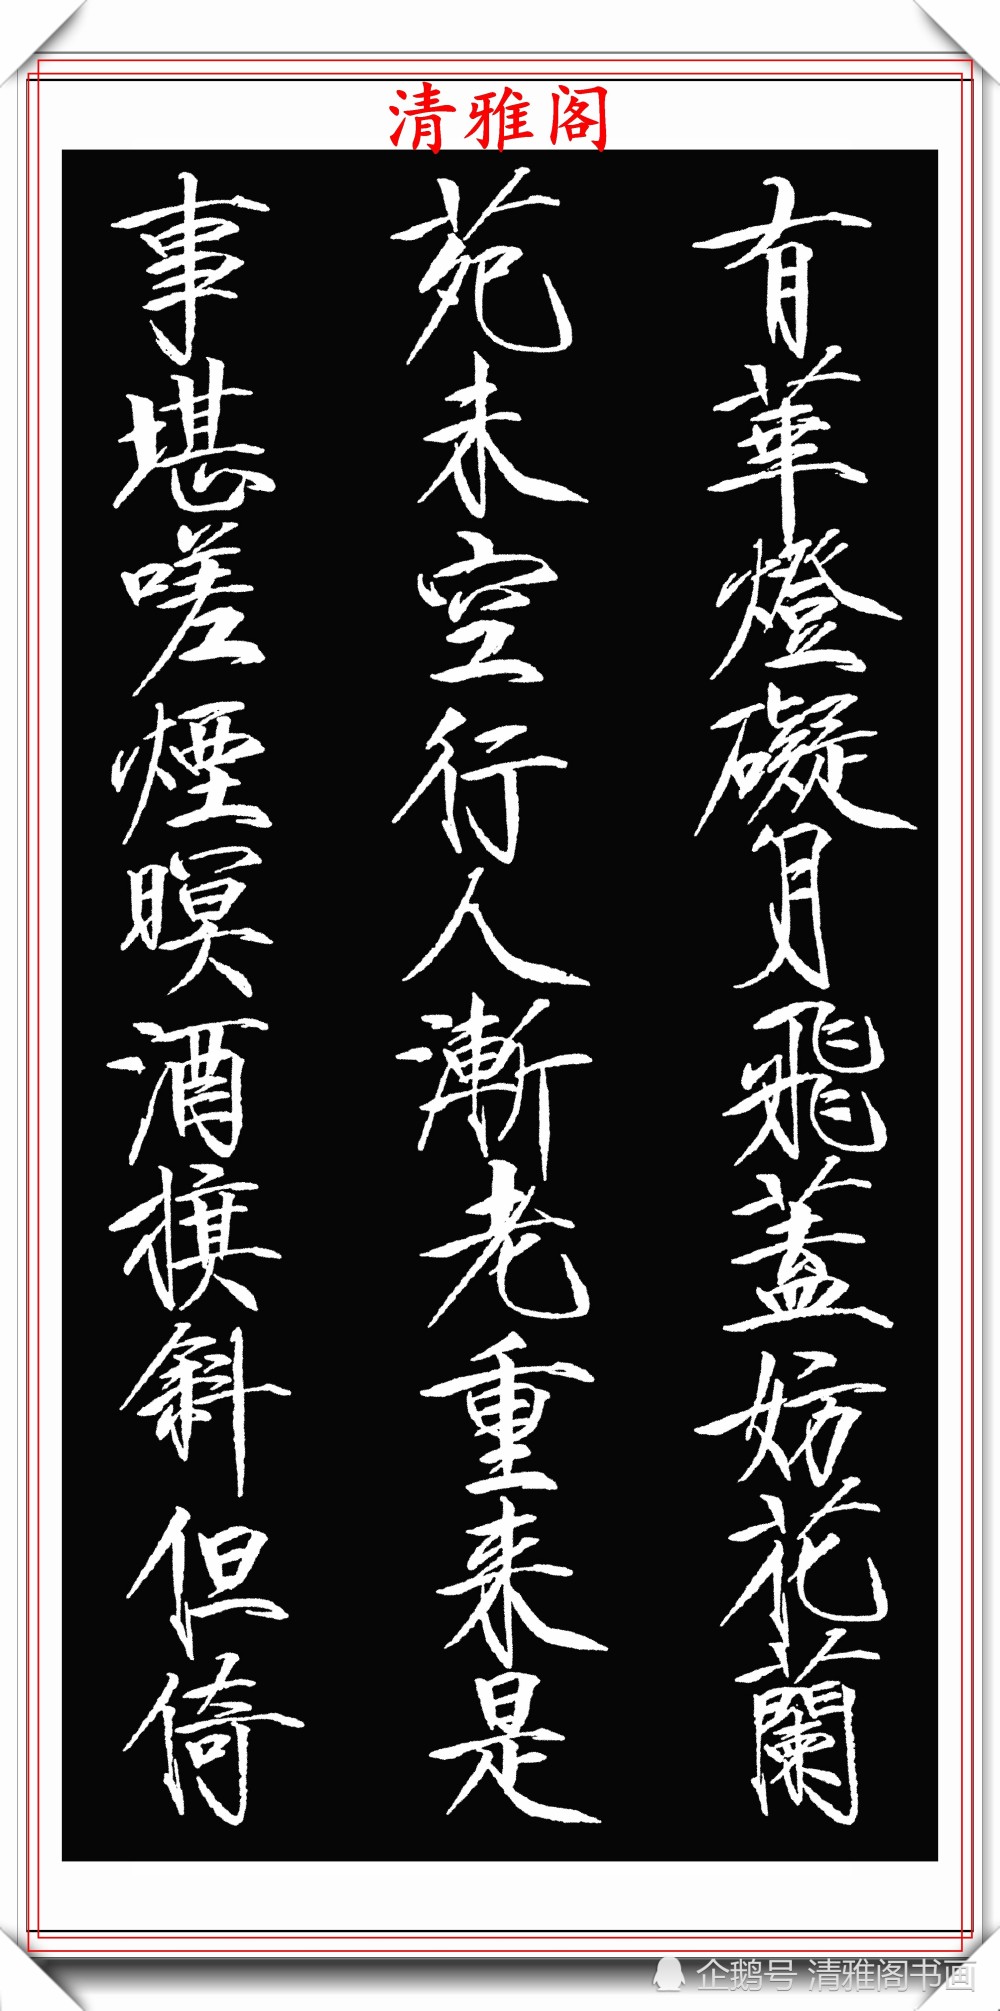 清雅阁
有華燈礙月飛蓋妨花蘭
苑未空行人漸老重来是
事堪嗟煙暝酒旗斜但倚
企鹅号 清雅阁书画